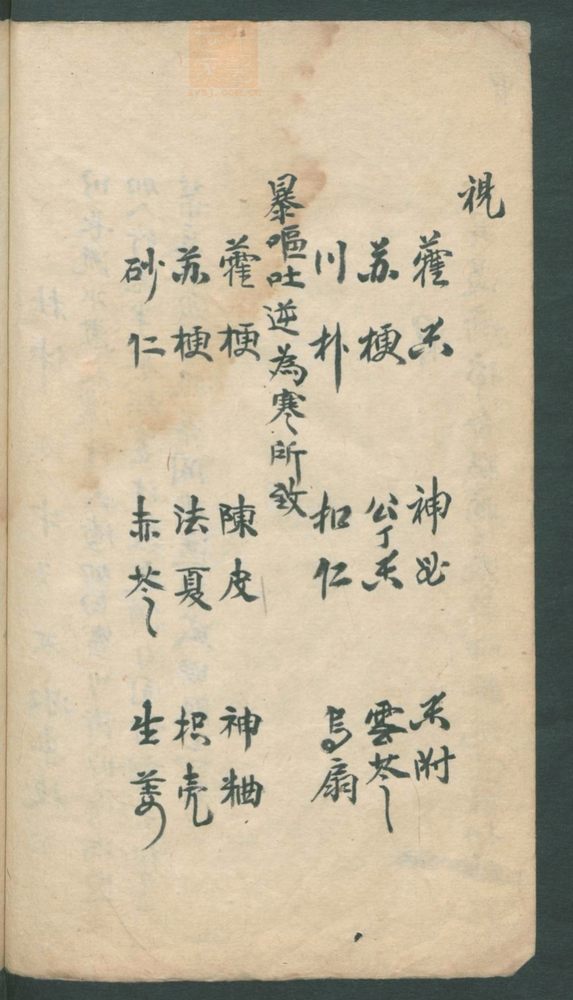 祝
藿香 神曲 香附
苏梗 公丁香 雲苓
川朴 扣仁 烏扇
暴嘔吐逆為寒所致
藿梗 陳皮 神粬
苏梗 法夏 枳壳
砂仁 赤苓 生姜